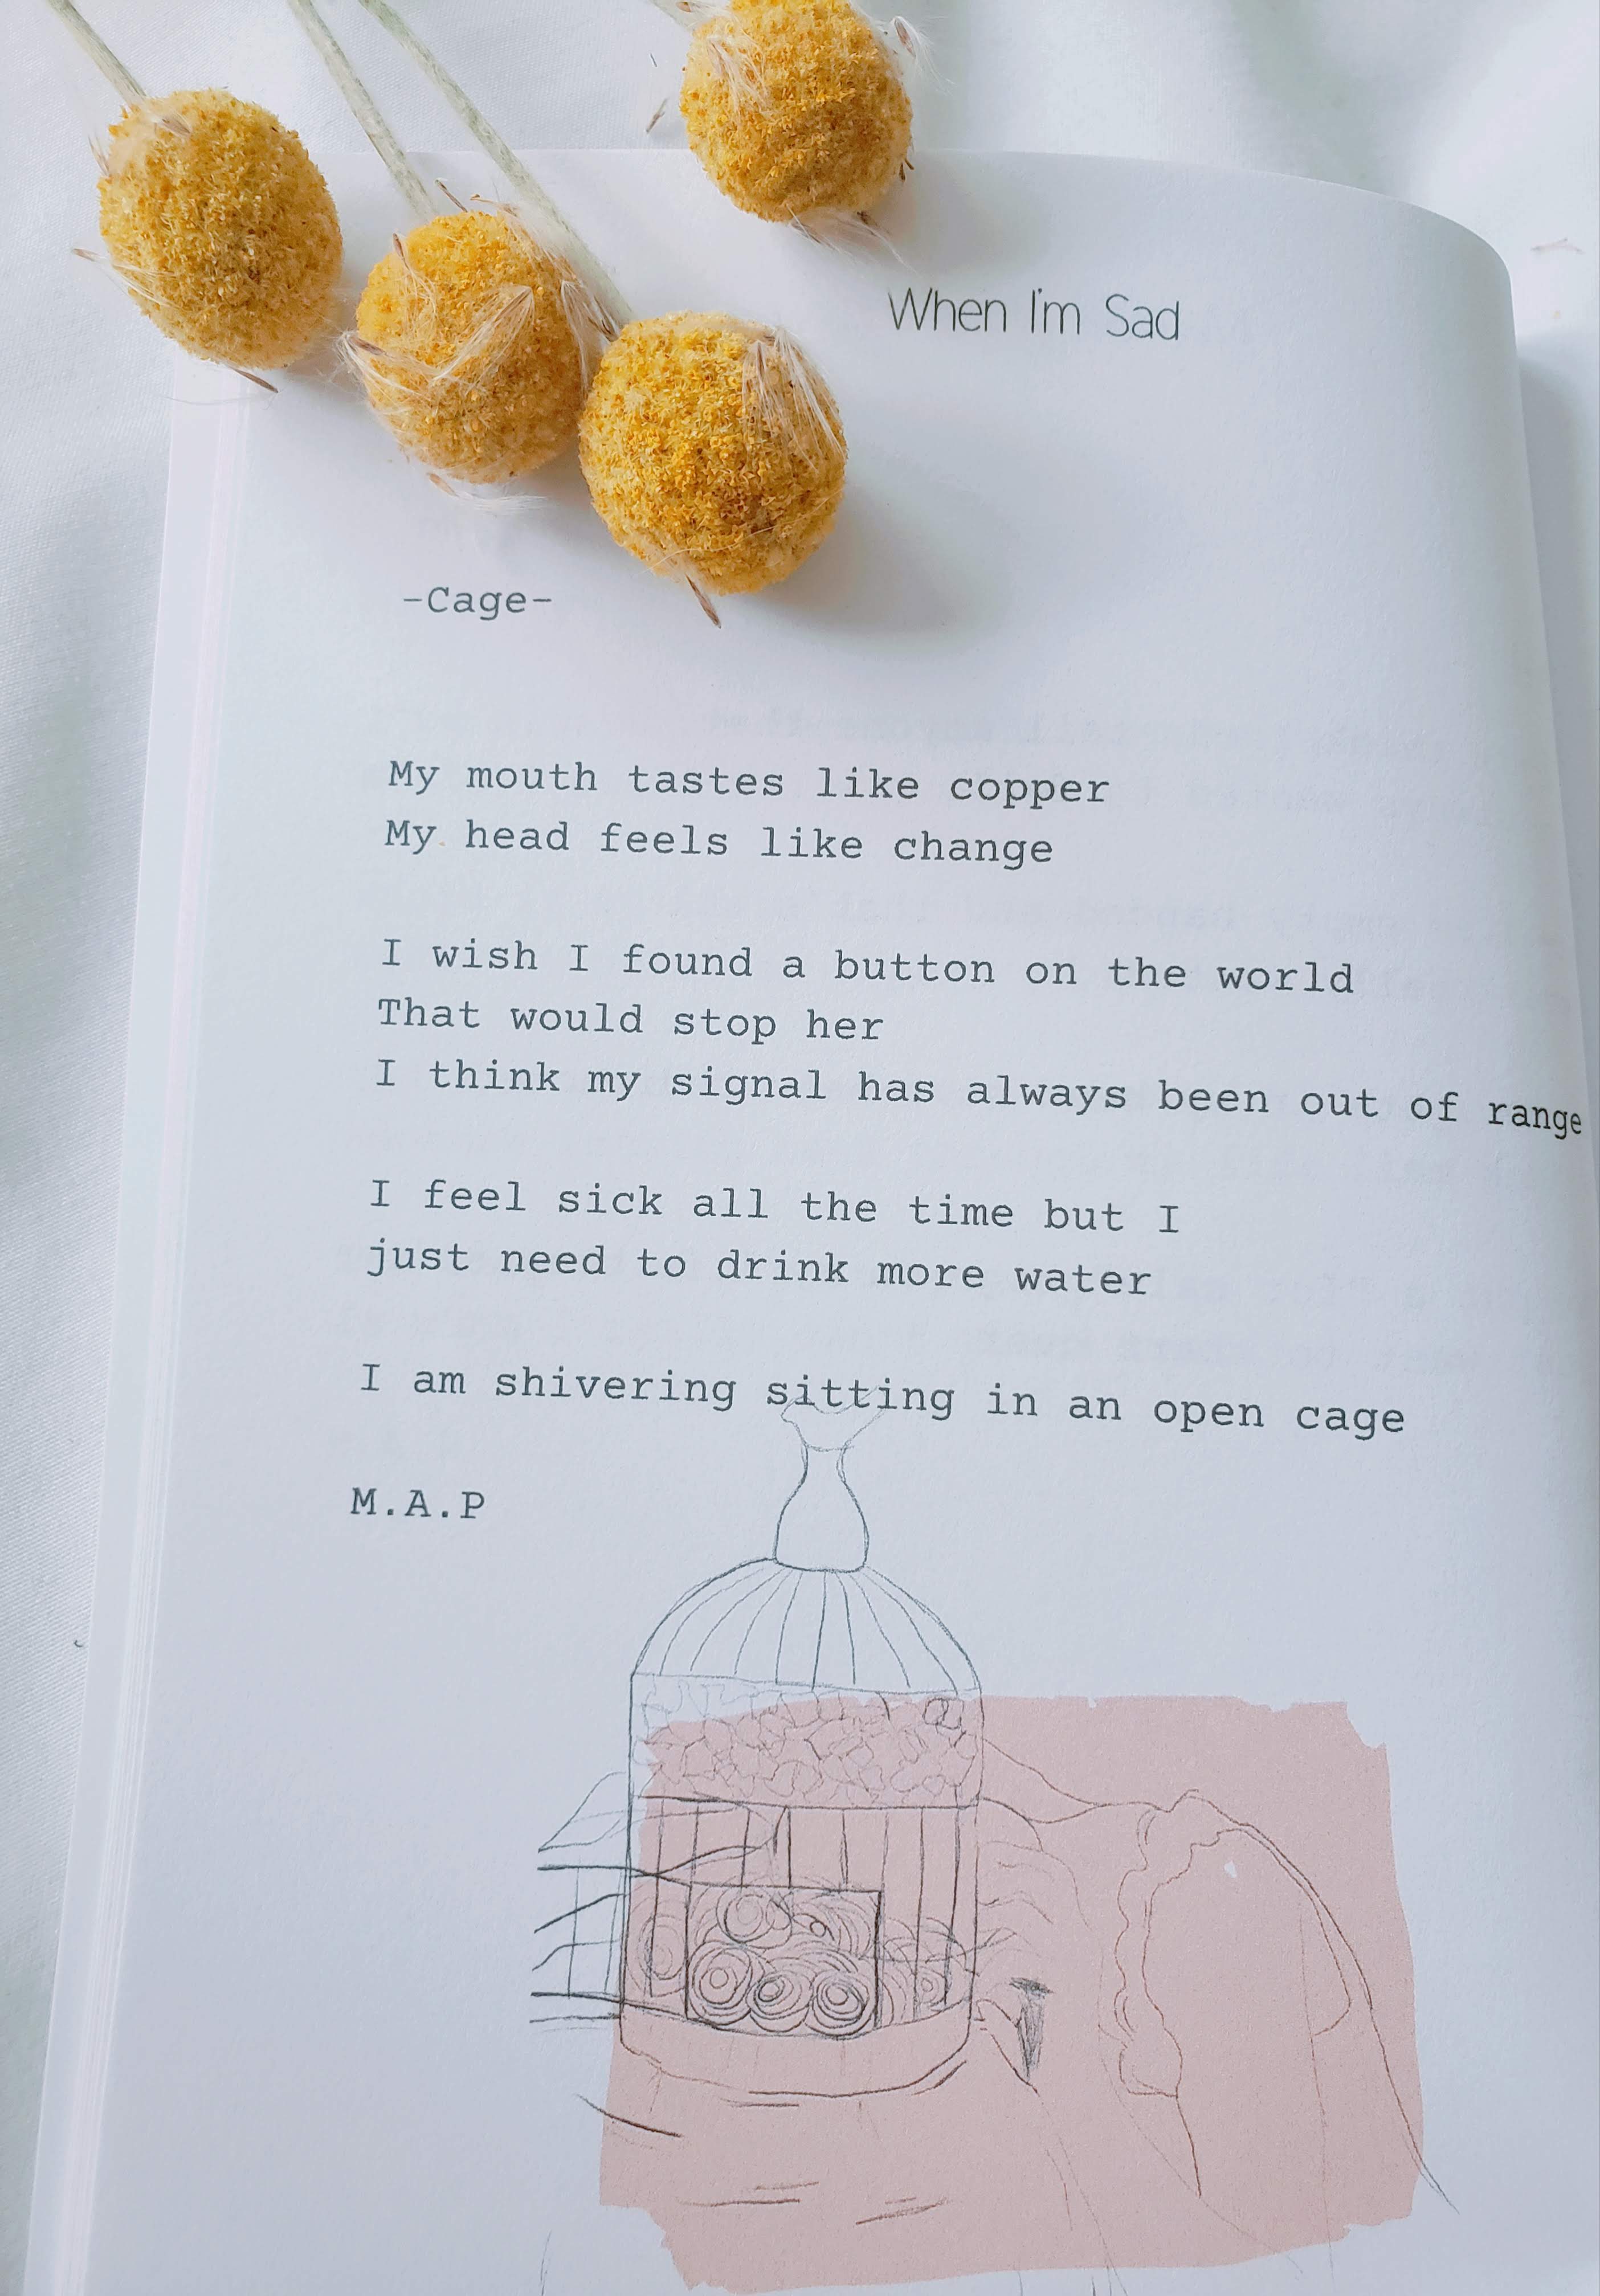 When I'm Sad
-Cage-
My mouth tastes like copper
My head feels like change
I wish I found a button on the world
That would stop her
I think my signal has always been out of range
I feel sick all the time but I
just need to drink more water
I am shivering sitting in an open cage
M.A.P